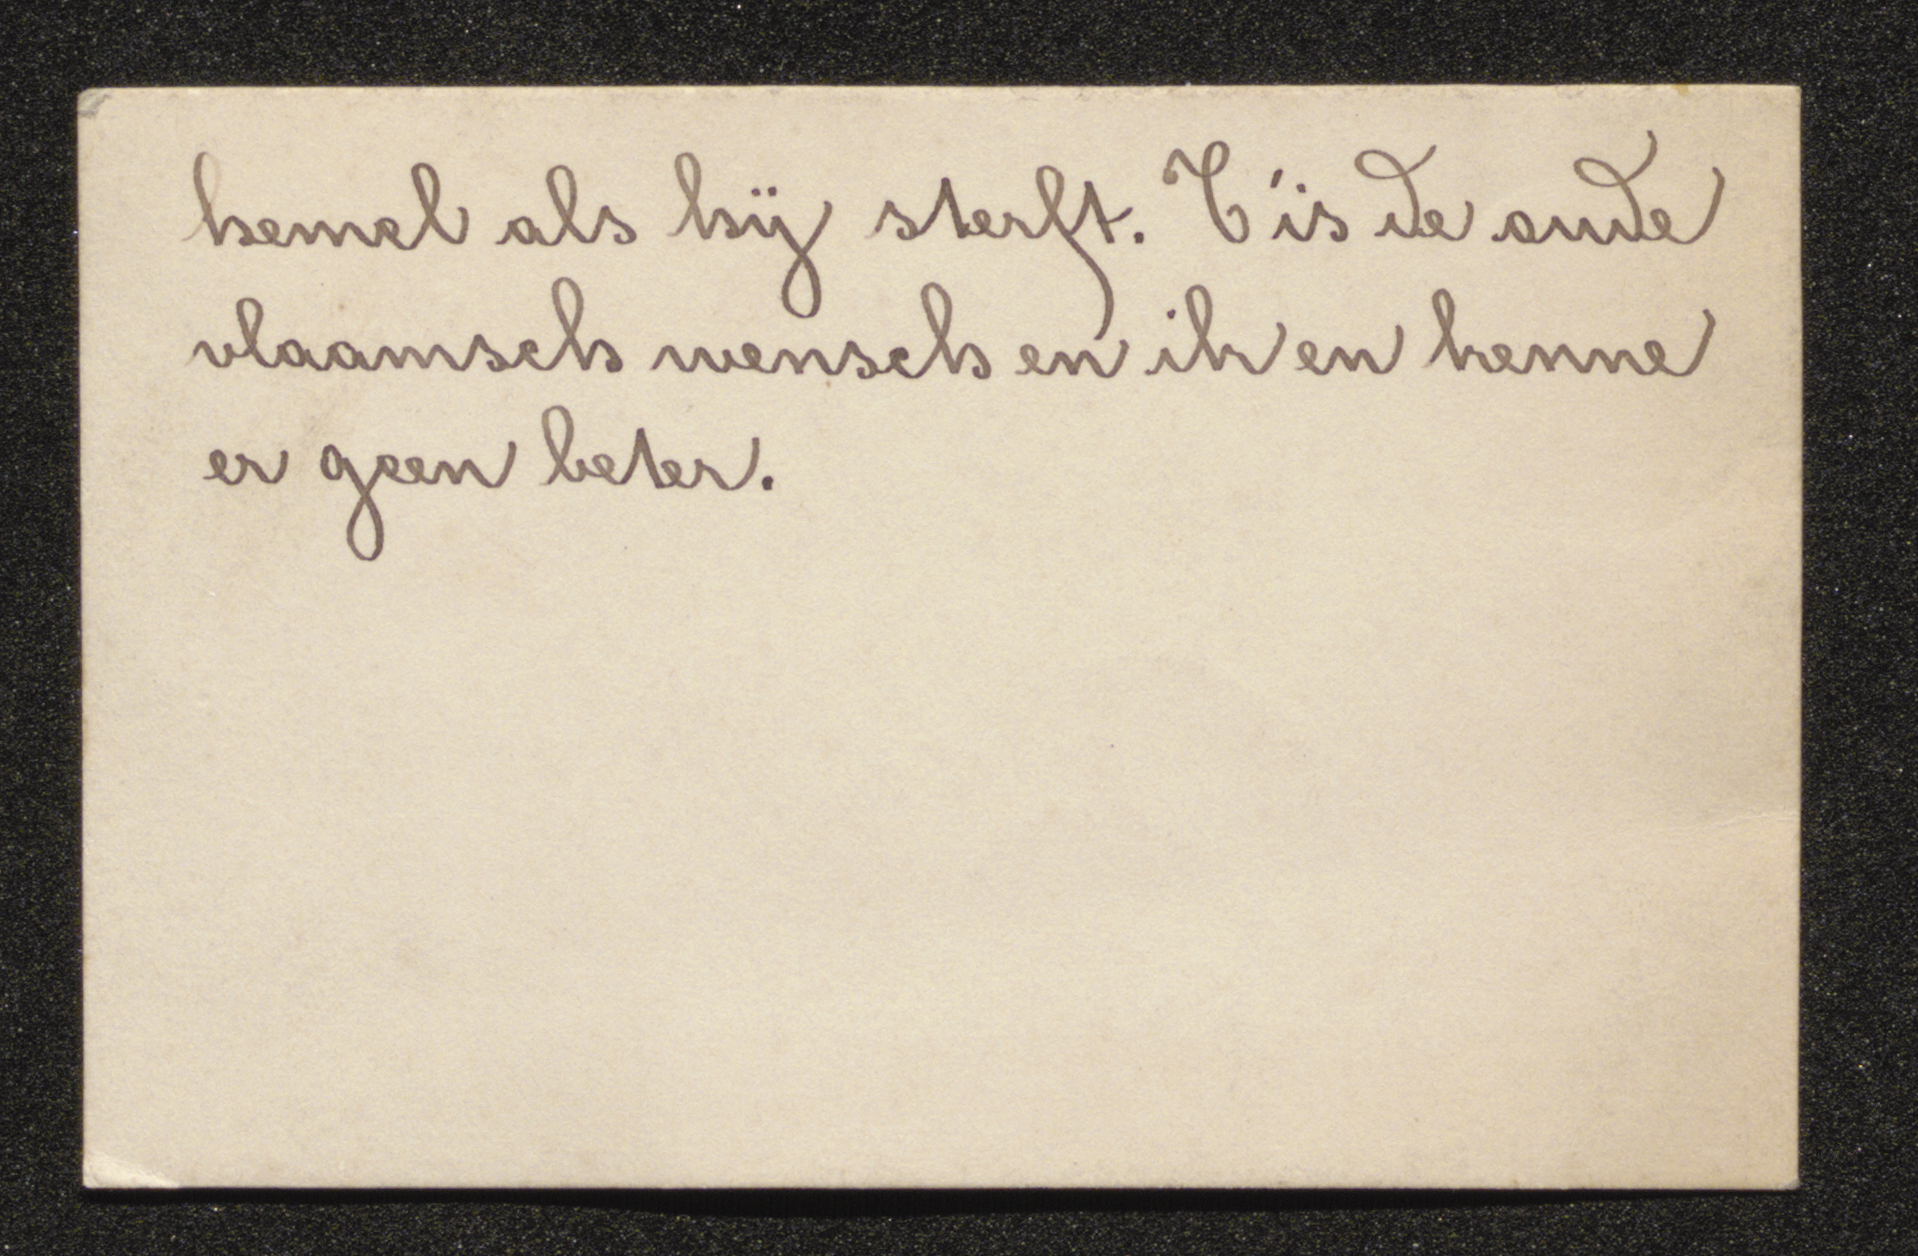 hemel als hij sterft. T'is de oude
vlaamsch wensch en ik en kenne
er geen beter.